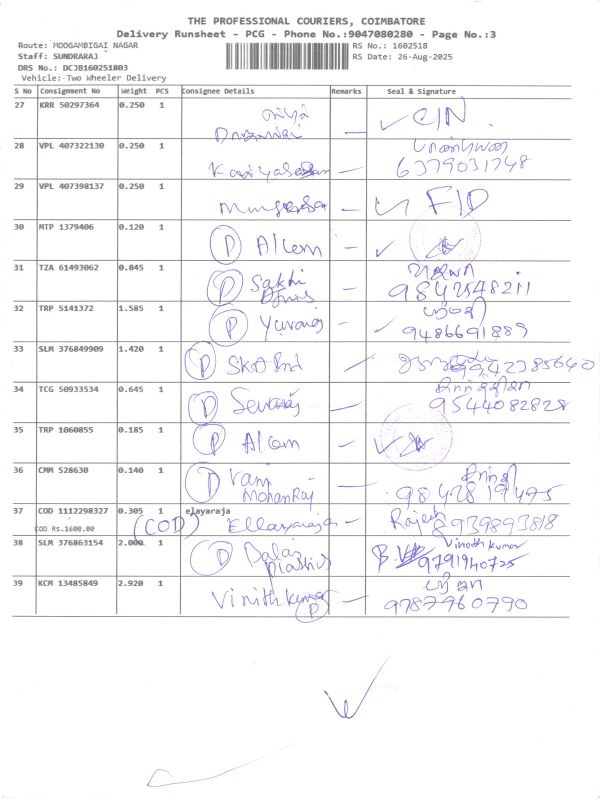 THE PROFESSIONAL COURIERS, COIMBATORE
Delivery Runsheet - PCG - Phone No.:9047080280 - Page No.:3
Route: MOOGAMBIGAI NAGAR RS No.: 1602518
Staff: SUNDRARAJ RS Date: 26-Aug-2025
DRS No.: DCJB160251803
Vehicle: Two Wheeler Delivery
S No Consignment No Weight PCS Consignee Details Remarks Seal & Signature
27 KRR 50297364 0.250 1
28 VPL 407322130 0.250 1
6379031748
29 VPL 407398137 0.250 1
30 MTP 1379406 0.120 1
P Alcem
31 TZA 61493062 0.845 1
P Sakthi
32 TRP 5141372 1.585 1
P Yuvaraj 9486691889
33 SLM 376849909 1.420 1
P SKA 9442385640
34 TCG 50933534 0.645 1
P 9544082828
35 TRP 1060855 0.185 1
P Alcem
36 CMM 528630 0.140 1
P Ram
MohanRaj 9842819475
37 COD 1112298327 0.305 1 elayaraja
COD Rs.1600.00 (COD) Ellayaraja Rajesh 8939893818
38 SLM 376863154 2.000 1 Vinoth kumar
P Balaji 9791940725
Plastics
39 KCM 13485849 2.920 1
Vinithkumar P 9787960790